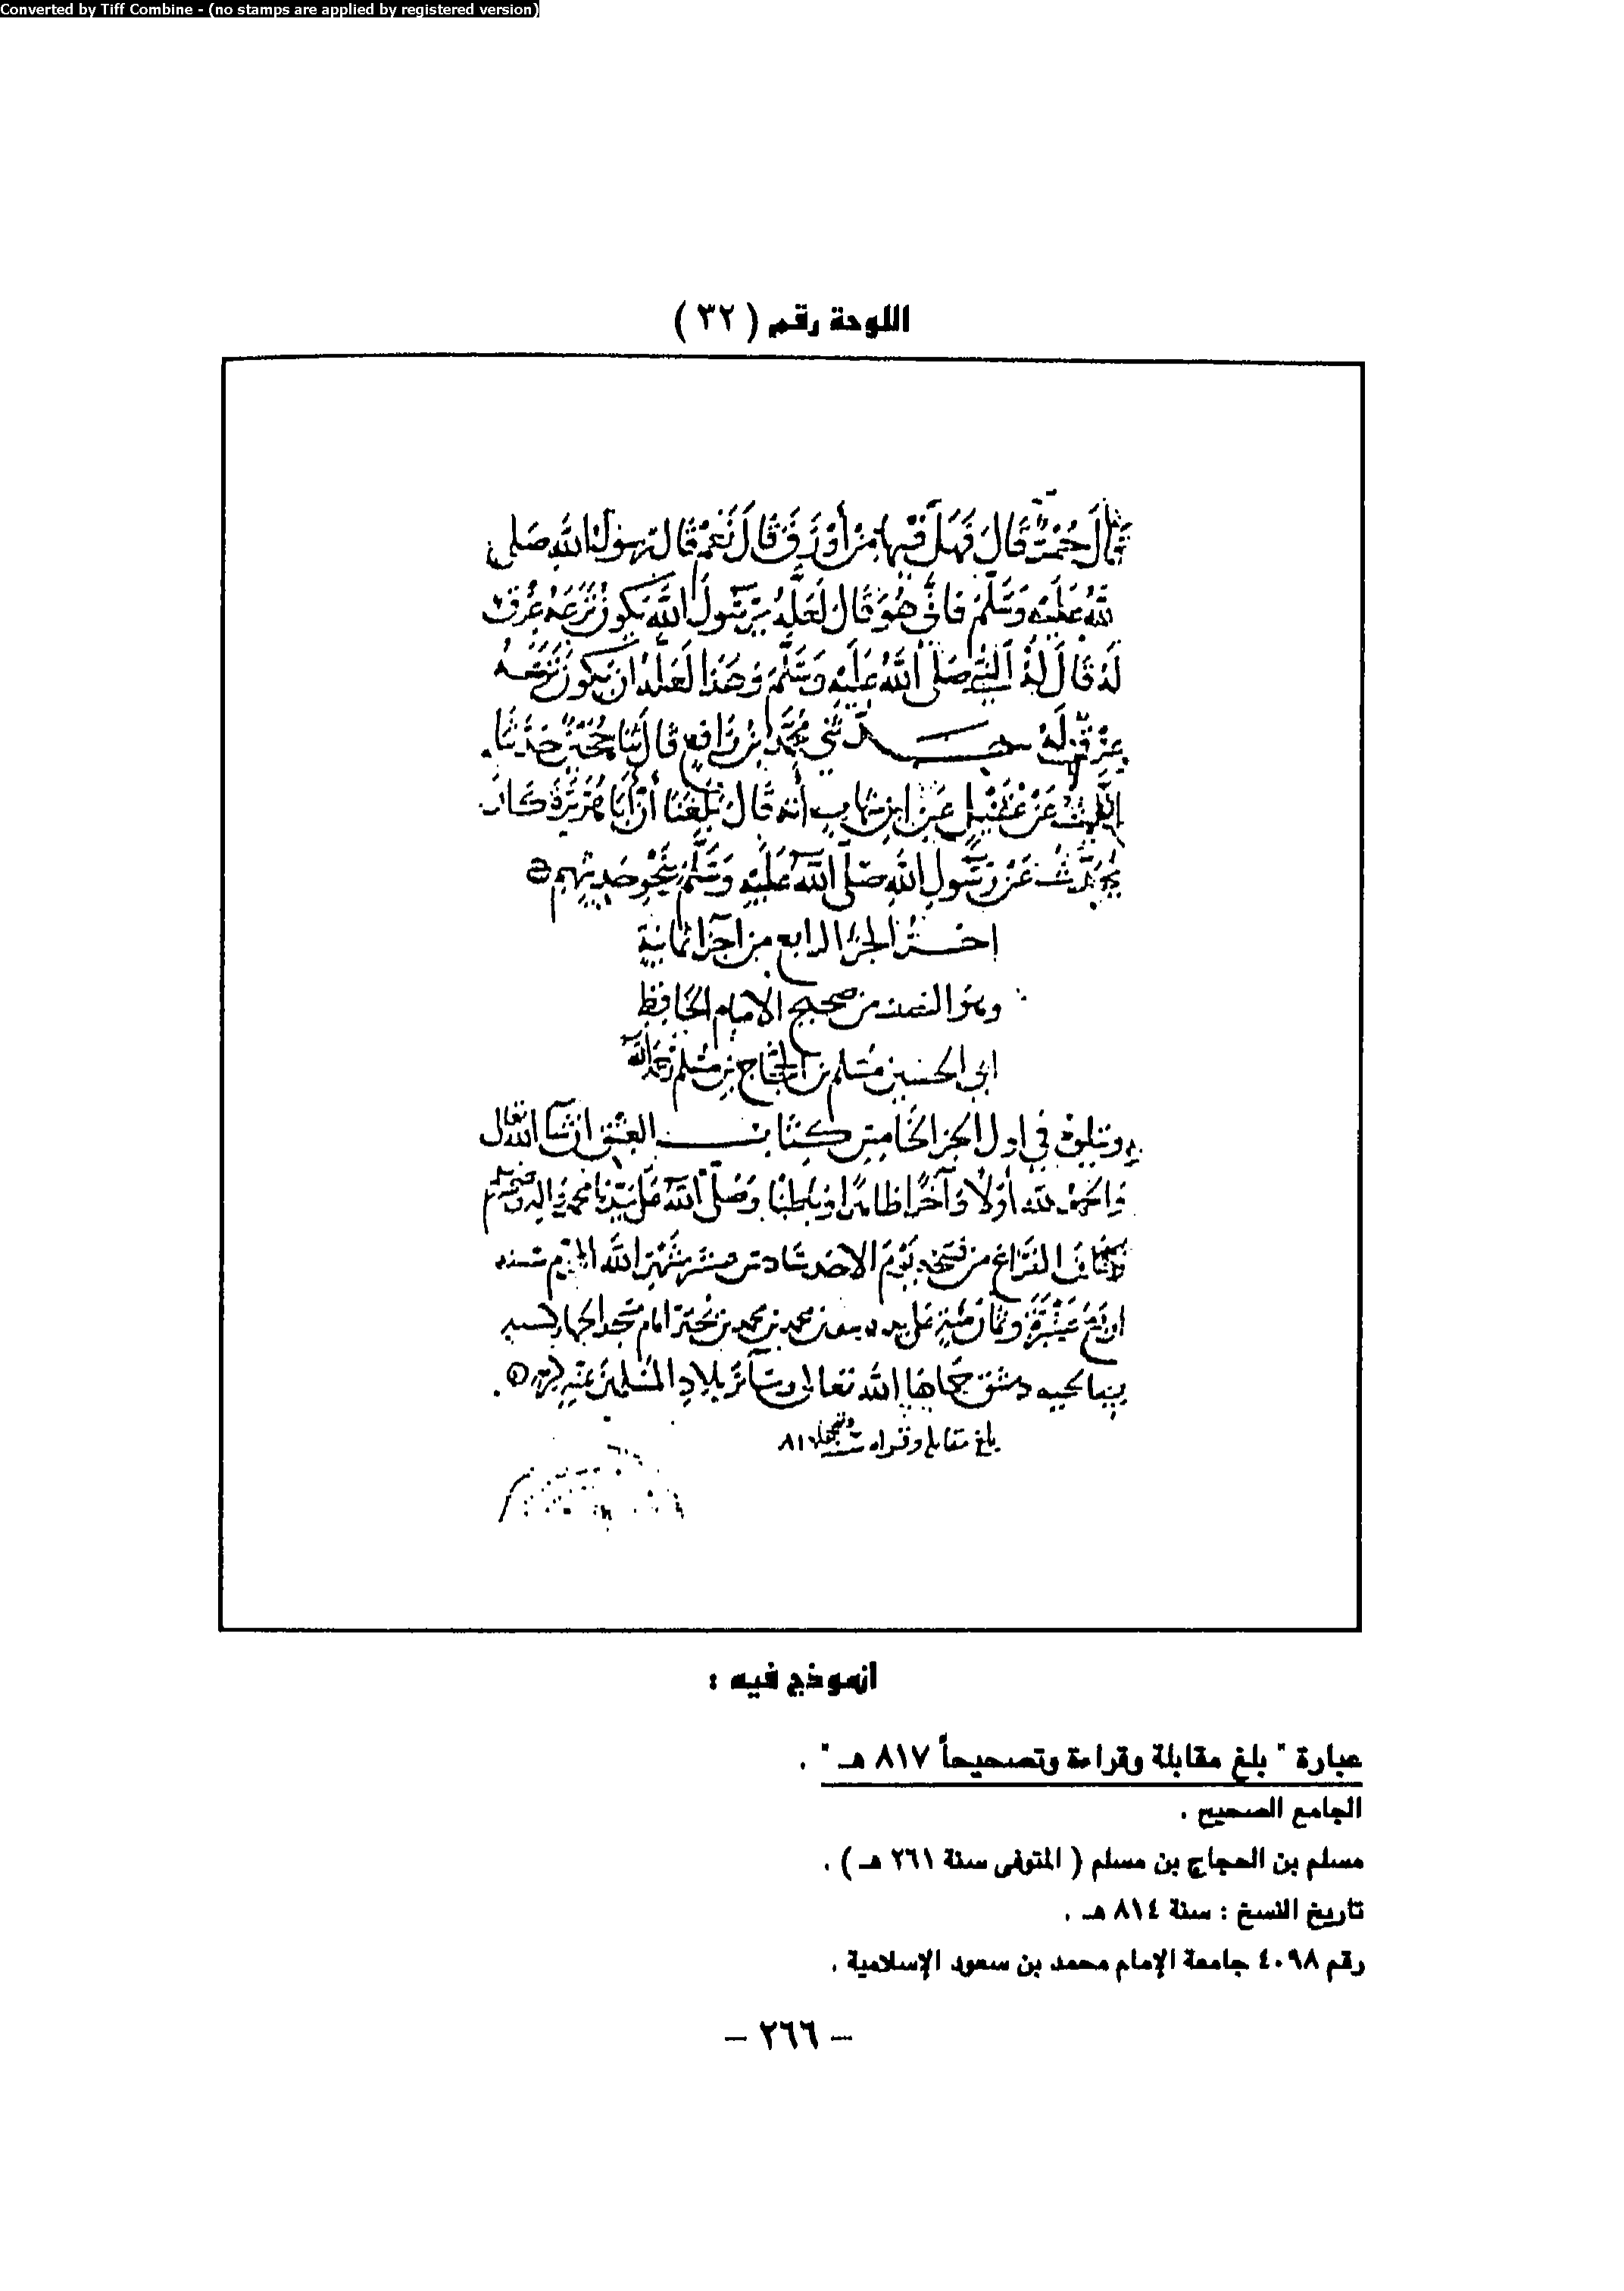 Converted by Tiff Combine - (no stamps are applied by registered version)
اللوحة رقم ( ٣٢ )
قَالَ حُمْرٌ قَالَ فَهَلْ فيها مِن أَوْرَقَ قَالَ نَعَمْ قَالَ رسُولُ اللهِ صَلى
اللهُ عَلَيْهِ وَسَلَّمَ فَأَنَّى هُوَ قَالَ لَعَلَّهُ يَرَسُولَ اللَّهِ يَكون نَزَعَهُ عِرْقٌ
لَهُ قَالَ لَهُ النَّبِيُّ صَلَّى اللهُ عَلَيْهِ وَسَلَّمَ وَهَذَا لَعَلَّهُ ان يَكونَ نَزَعَهُ
عِرْقٌ لَهُ حدثَنِي مُحَمَّدُ بن رَافِعٍ قَالَ ثنا حُجَيْنٌ حَدَّثنَا
اللَّيْثُ عَنْ عُقَيْلٍ عَنِ ابن شِهَابٍ أنه قَالَ بَلَغَنَا أَنَّ أَبَا هُرَيْرَةَ كَانَ
يُحَدِّثُ عَنْ رَسُولِ اللهِ صَلَّى اللَّهُ عَلَيْهِ وَسَلَّمَ بِنَحْوِ حَدِيثهِم
اخر الجزء الرابع من اجزا ثمانية
وهو النصف من صحيح الامام الحَافِظ
ابى الحسين مُسْلم بن الحجَّاج بن مُسْلم رحمه الله
ويتلوه في اول الجز الخَامِسِ كِتَاب العِتْق ان شَا اللهُ تعالى
وَالحمد لله أَوَّلاً وَآخِرًا ظاهرًا وبَاطِنًا وَصَلَّى اللهُ عَلَى سَيِّدِنَا محمد وَاله وصحبه وسلم
الفَرَاغ من نسخه يَوْمَ الاحد سَادس عشر شَهْرِ اللَّه المحرم سنه
اربَع عَشْرَةَ وثَمَان مِئَةٍ عَلَى يد محمد بن محمد امام مسجد
دمشق حَمَاهَا الله تعَالى وسَائر بِلادِ المُسْلِمِينَ
بلغ مقابله وقراه وتصحيحا سنة ٨١
انموذج فيه :
عبارة " بلغ مقابلة وقراءة وتصحيحاً ٨١٧ هـ " .
الجامع الصحيح .
مسلم بن الحجاج بن مسلم ( المتوفى سنة ٢٦١ هـ ) .
تاريخ النسخ : سنة ٨١٤ هـ .
رقم ٤٠٩٨ جامعة الإمام محمد بن سعود الإسلامية .
– ٢٦٦ –